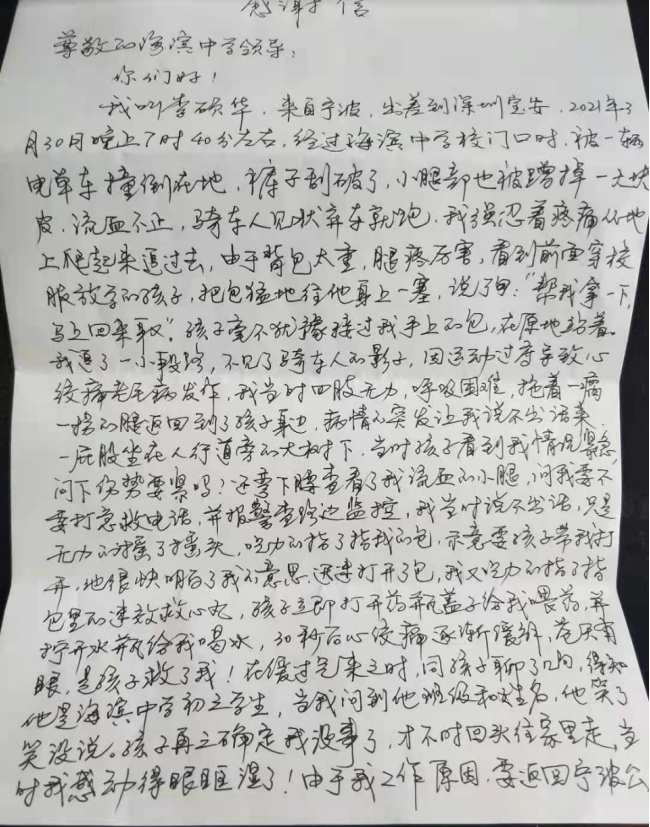 感谢信
尊敬的海滨中学领导：
你们好！
我叫李硕华，来自宁波，出差到深圳宝安，2021年3
月30日晚上7时40分左右，经过海滨中学校门口时，被一辆
电单车撞倒在地，裤子刮破了，小腿部也被蹭掉一大块
皮，流血不止，骑车人见状弃车就跑，我强忍着疼痛从地
上爬起来追过去，由于背包太重，腿疼厉害，看到前面穿校
服放学的孩子，把包猛地往他身上一塞，说了句：“帮我拿一下，
马上回来取”。孩子毫不犹豫接过我手上的包，在原地站着。
我追了一小段路，不见了骑车人的影子，因运动过度导致心
绞痛老毛病发作，我当时四肢无力，呼吸困难，拖着一瘸
一拐的腿返回到了孩子身边，病情的突发让我说不出话来，
一屁股坐在人行道旁的大树下，当时孩子看到我情况紧急，
问下伤势要紧吗？还弯下腰查看了我流血的小腿，问我要不
要打急救电话，并报警查路边监控，我当时说不出话，只是
无力的摇了摇头，吃力的指了指我的包，示意要孩子帮我打
开，他很快明白了我的意思，迅速打开了包，我又吃力的指了指
包里的速效救心丸，孩子立即打开药瓶盖子给我喂药，并
拧开水瓶给我喝水，30秒后心绞痛逐渐缓解，苍天有
眼，是孩子救了我！在缓过气来之时，同孩子聊了几句，得知
他是海滨中学初三学生，当我问到他班级和姓名，他笑了
笑没说。孩子再三确定我没事了，才不时回头往家里走，当
时我感动得眼眶湿了！由于我工作原因，要返回宁波公